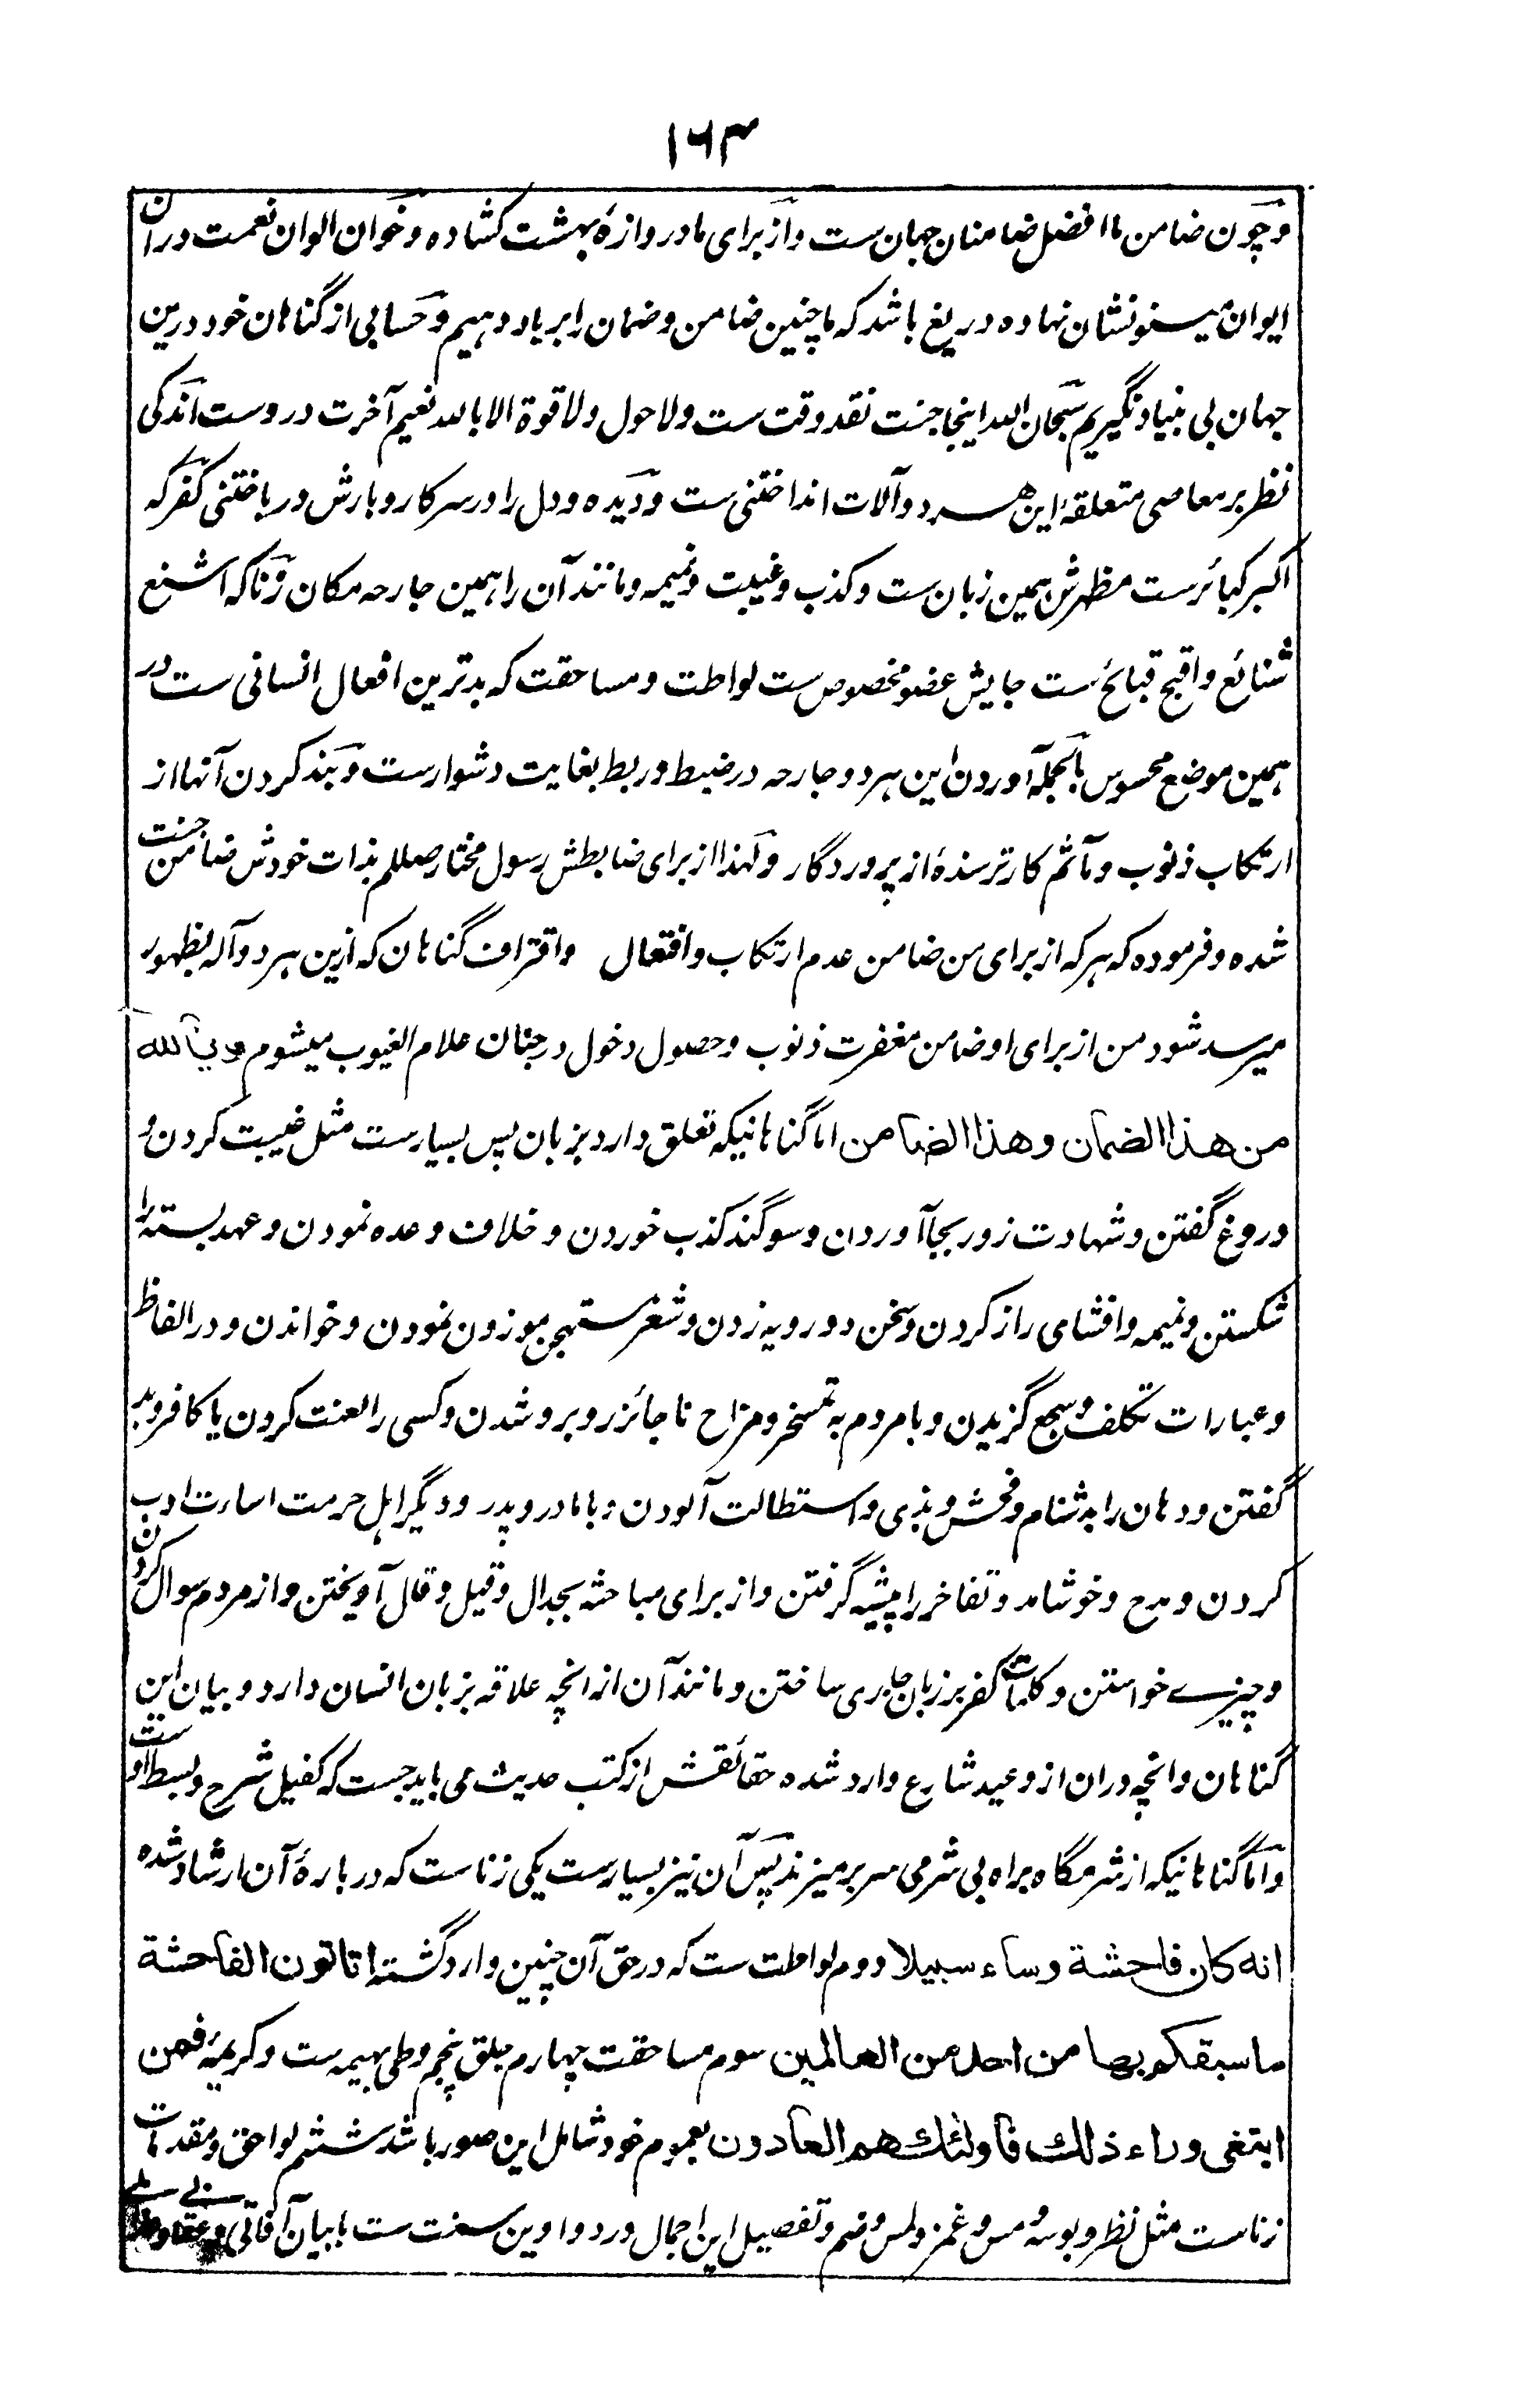 ۱۶۳
و چون ضامن ما افضل ضامنان جهان ست و از برای ما دروازهٔ بهشت کشاده و خوان الوان نعمت در ان
ایوان مینو نشان نهاده دریغ باشد که ما چنین ضامن و ضمان را بر باد دهیم و حسابی از گناهان خود درین
جهان بی بنیاد نگیریم سبحان الله اینجا جنت نقد وقت ست ولا حول ولا قوة الا بالله نعیم آخرت در دست اندکی
نظر بر معاصی متعلقهٔ این هر دو آلات انداختنی ست و دیده و دل را در سر کار و بارش در باختنی کفر که
اکبر کبائر ست مظهرش همین زبان ست و کذب و غیبت و نمیمه و مانند آن را همین جارحه مکان و زنا که اشنع
شنائع و اقبح قبائح ست جایش عضو مخصوص ست لواطت و مساحقت که بدترین افعال انسانی ست در
همین موضع محسوس بالجمله آوردن این هر دو جارحه در ضبط و ربط بغایت دشوار ست و بند کردن آنها از
ارتکاب ذنوب و مآثم کار ترسندهٔ از پروردگار و لهذا از برای ضابطش رسول مختار صلعم بذات خودش ضامن جنت
شده و فرموده که هر که از برای من ضامن عدم ارتکاب و افتعال واقتراف گناهان که ازین هر دو آله بظهور
میرسد شود من از برای او ضامن مغفرت ذنوب و حصول دخول در جنان علام الغیوب میشوم الله
من هذا الضمان وهذا الضامن اما گناهانیکه تعلق دارد بزبان پس بسیار ست مثل غیبت کردن و
دروغ گفتن و شهادت زور بجا آوردن و سوگند کذب خوردن و خلاف وعده نمودن و عهد بسته را
شکستن و نمیمه و افشای راز کردن و سخن دو رویه زدن و شعر مستهجن موزون نمودن و خواندن و در الفاظ
و عبارات تکلف و سجع گزیدن و با مردم به تمسخر و مزاح ناجائز روبرو شدن و کسی را لعنت کردن یا کافر و بد
گفتن و دهان را بدشنام و فحش و بذی و استطالت آلودن و با مادر و پدر و دیگر اهل حرمت اساءت ادب
کردن و مدح و خوشامد و تفاخر را پیشه گرفتن و از برای مباحثه بجدال و قیل و قال آویختن و از مردم سوال کردن
و چیزے خواستن و کلمات کفر بر زبان جاری ساختن و مانند آن از انچه علاقه بزبان انسان دارد و بیان این
گناهان و انچه دران از وعید شارع وارد شده حقائقش از کتب حدیث می باید جست که کفیل شرح و بسط او ست
و اما گناهانیکه از شرمگاه براه بی شرمی سر بر میزند پس آن نیز بسیار ست یکی زناست که در بارهٔ آن ارشاد شده
انه كان فاحشة وساء سبيلا دوم لواطت ست که در حق آن چنین وارد گشته اتاتون الفاحشة
ما سبقكم بها من احد من العالمين سوم مساحقت چهارم جلق پنجم وطی بهیمه ست و کریمهٔ فمن
ابتغى وراء ذلك فاولئك هم العادون بعموم خود شامل این صور باشد ششم لواحق و مقدمات
زناست مثل نظر و بوسه و مس و غمز و لمس و ضم و تفصیل این اجمال در دواوین سنت ست با بیان آفاتی